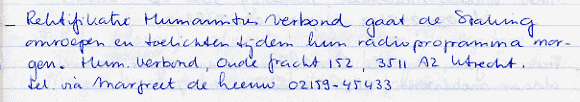 - Rektifikatie Humanitis Verbond gaat de Stalling
omroepen en toelichten tijdens hun radioprogramma mor-
gen. Hum. Verbond, Oude Gracht 152, 3511 AZ Utrecht.
tel. via Margreet de Leeuw 02159-45433